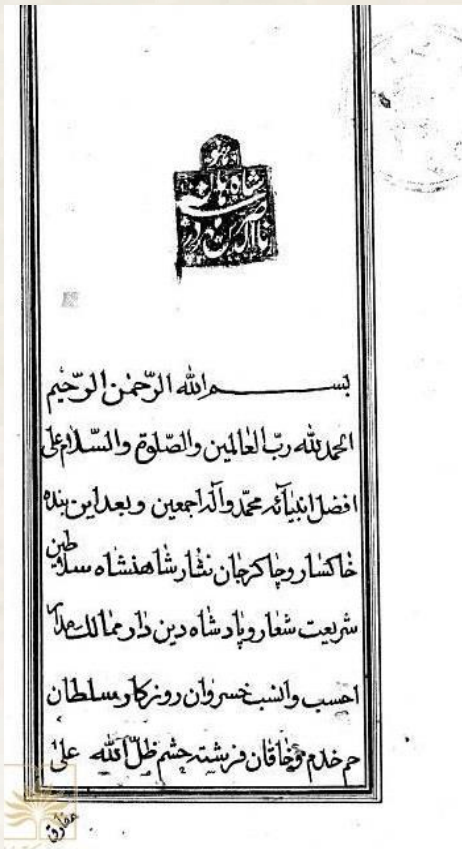 بســـم الله الرّحمٰن الرّحیم
الحمد لله ربّ العالمین والصّلوة والسّلام علی
افضل انبیآئه محمّد وآله اجمعین وبعد این بنده
خاکسار و چاکر جان نثار شاهنشاه سلاطین
شریعت شعار و پادشاه دین دار ممالک مدار
احسب وانسب خسروان روزکار سلطان
جم خدم و خاقان فرشته حشم ظلّ الله علیٰ
مفارق